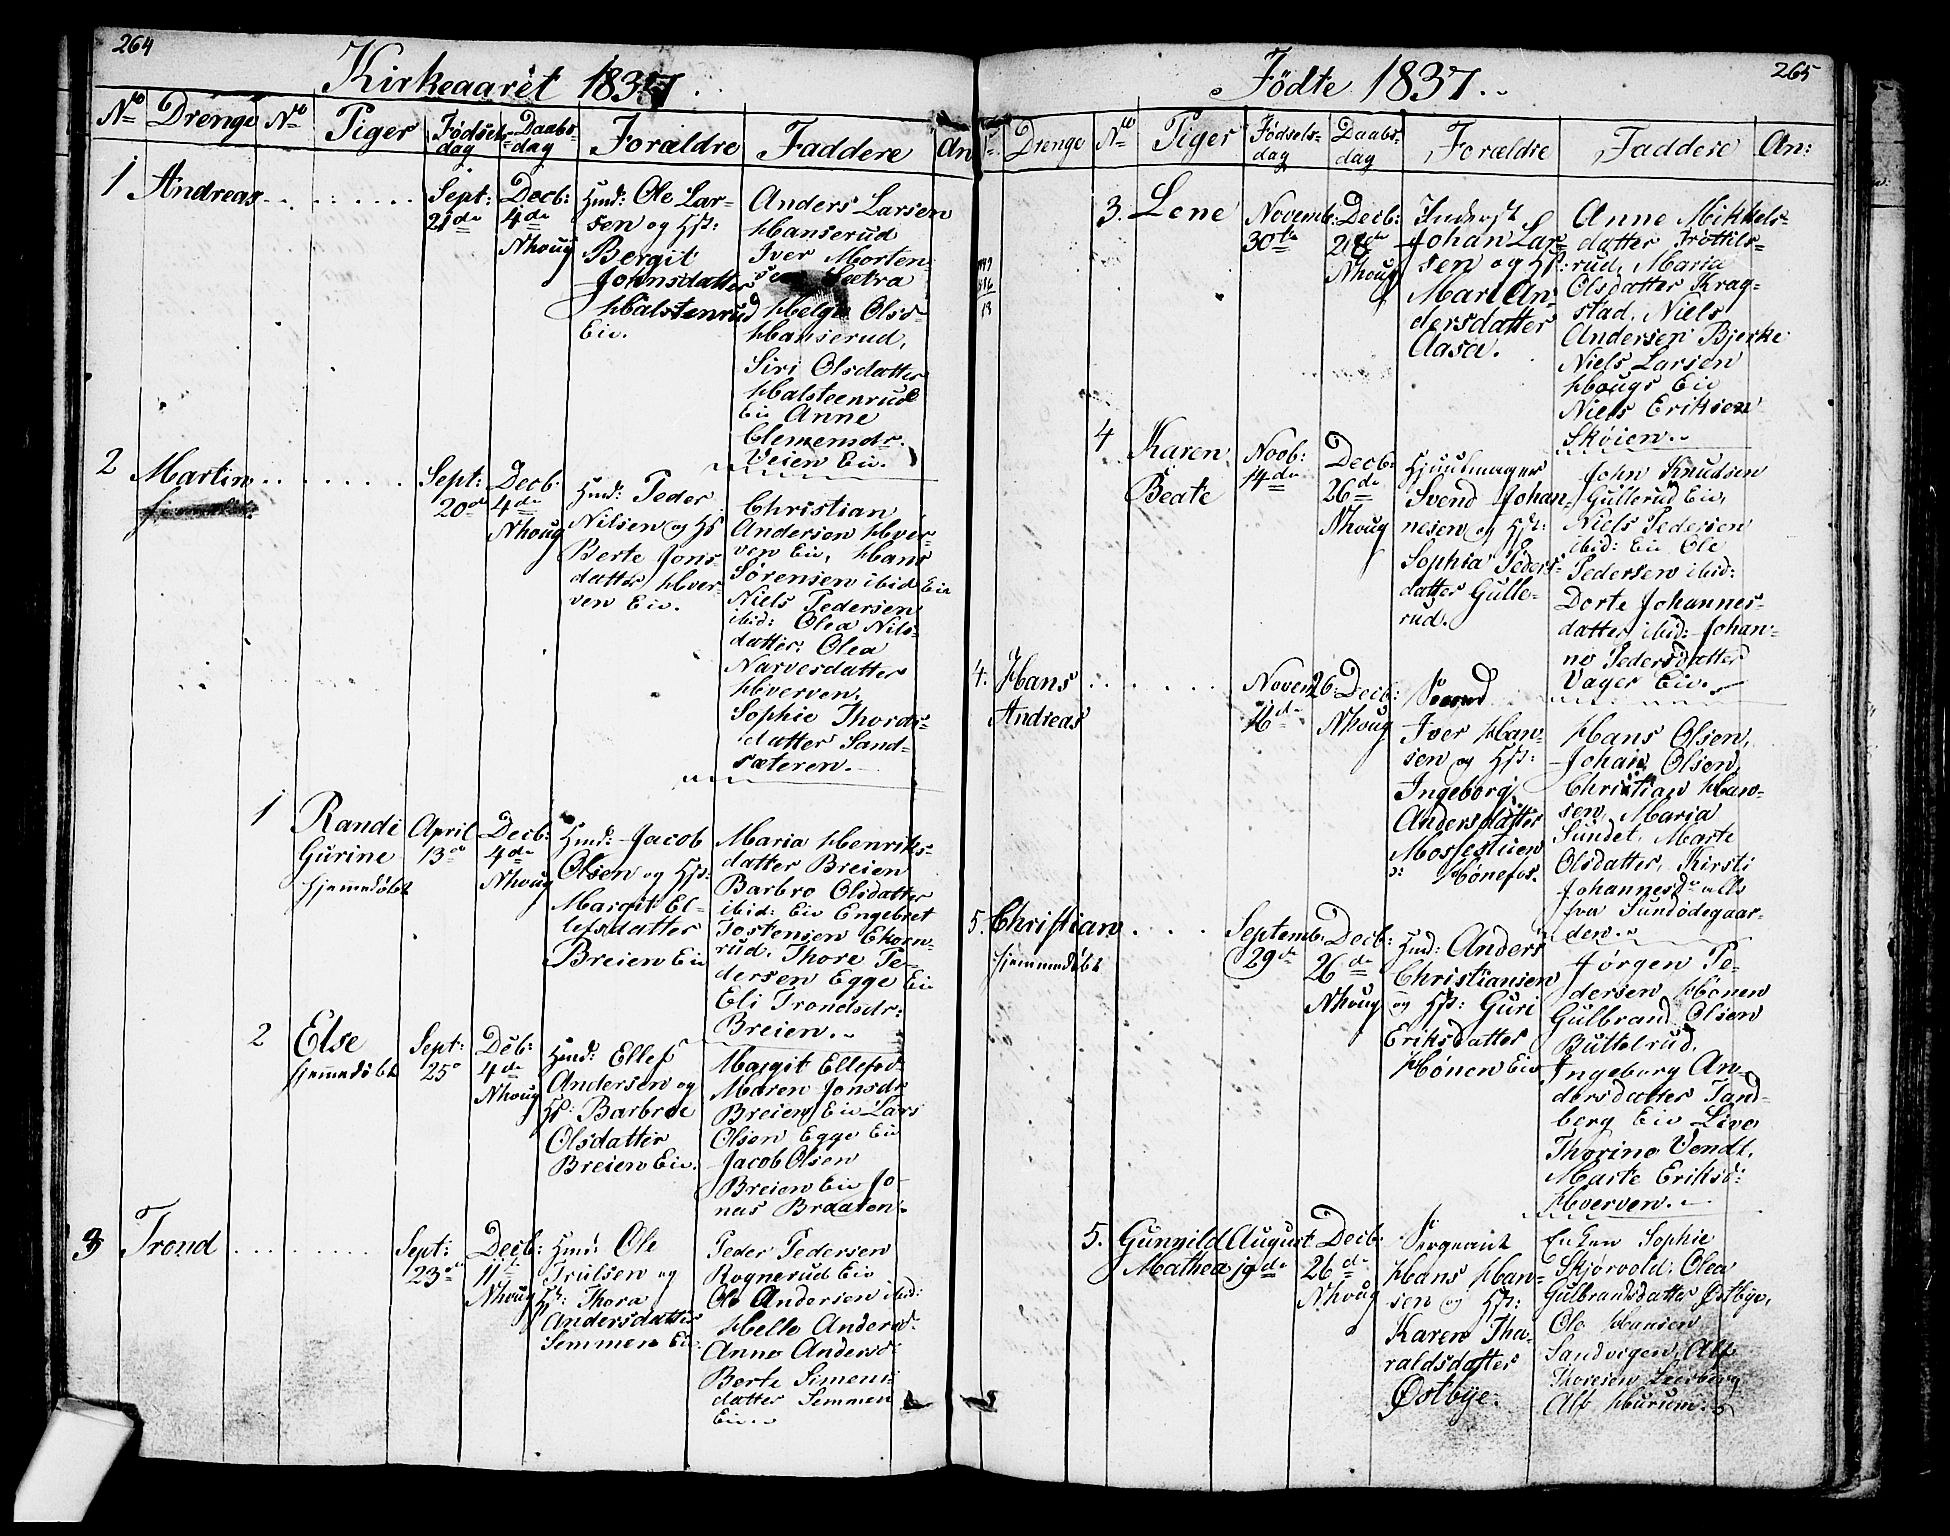 264
Kirkeaaret 1837.
No Drenge No Piger Fødselsdag Daabsdag Forældre Faddere An
1 Andreas
Sept:
21de
Decb:
4de
Nhoug
Hmd: Ole Lar-
sen og Hst:
Bergit
Johnsdatter
Halstenrud
Eie.
Anders Larsen
Hanserud
Iver Morten-
sen Sætra
Helge Olsd-
Hanserud,
Siri Olsdatter
Halsteenrud
Eie Anne
Clemensdr.
Veien Eie.
2 Martin
Sept:
20de
Decb.
4de
Nhoug
Hmd: Peder
Nilsen og Hst
Berte Jons-
datter Hver-
ven Eie.
Christian
Andersen Hver-
ven Eie, Hans
Sørensen ibid Eie
Niels Pedersen
ibid: Olea Nils-
datter: Olea
Narvesdatter
Hverven,
Sophie Thords-
datter Sand-
sæteren.
1 Randi
Gurine
hjemmedøbt
April
13de
Decb:
4de
Nhoug
Hmd: Jacob
Olsen og Hst:
Margit El-
lefsdatter
Breien Eie
Maria Henriks-
datter Breien
Barbro Olsdatter
ibid: Eie Engebret
Tostensen Ekorn-
rud. Thore Pe-
dersen Egge Eie
Eli Trondsdr:
Breien.
2 Else
hjemmedøbt
Sept:
25de
Deb:
4de
Nhoug
Hmd: Ellef
Andersen og
Hst: Barbroe
Olsdatter
Breien Eie.
Margit Ellefsd-
Maren Jonsdr
Breien Eie Lars
Olsen Egge Eie
Jacob Olsen
Breien Eie Jo-
nas Braaten.
3 Trond
Sept:
23de
Decb:
11te
Nhoug
Hmd: Ole
Trulsen og
Hst: Thora
Andersdatter
Semmen Eie:
Peder Pedersen
Rognerud Eie
Ole Andersen ibid:
Helle Andersd.
Anne Andersd:
Berte Simens-
datter Semmen
Eie.
Fødte 1837.
265
Drenge No Piger Fødselsdag Daabsdag Forældre Faddere An:
3. Lene
Novemb:
30te
Decb:
Nhoug
Inderst
Johan Lar-
sen og Hst:
Mari An-
dersdatter
Aasa.
Anne Mikkels-
datter Trøttils-
rud, Maria
Olsdatter Krag-
stad, Niels
Andersen Bjerke
Niels Larsen
Hougs Eie
Niels Eriksen
Skøien.
4 Karen
Beate
Novb:
14de
Decb:
26de
Nhoug
Hjuulmager
Svend Johan-
nesen og Hst:
Sophia Peders-
datter Gulle-
rud.
John Knudsen
Gullerud Eie,
Niels Pedersen
ibid: Eie Ole
Pedersen ibid:
Dorte Johannes-
datter ibid: Johan-
ne Pedersdatter
Vager Eie.
4. Hans
Andreas
Novem
16de
26 Decb:
Nhoug
Iver Han-
sen og Hst:
Ingeborg
Andersdatter
Mosfestuen
Hønefos.
Hans Olsen,
Johan Olsen,
Christian Han-
sen, Maria
Sundet, Marte
Olsdatter, Kirsti
Johannesdr alle
fra Sundødegaar-
den.
5. Christian
hjemmedøbt
Septemb:
29de
Decb:
26de
Nhoug
Hmd: Anders
Christiansen
og Hst: Guri
Eriksdatter
Hønen Eie
Jørgen Pe-
dersen Hønen
Gulbrand Olsen
Buttelrud,
Ingeborg An-
dersdatter Tand-
berg Eie Live
Thorine Vendt,
Marte Eriksd:
Hverven.
5. Gunnild
Mathea
August
19de
Decb:
26de
Nhoug
Sergeant
Hans Han-
sen og Hst:
Karen Tha-
raldsdatter
Østbye.
Enken Sophie
Skjørvold: Olea
Gulbrandsdatter Østbye,
Ole Hansen
Sandvigen, Alf
Alf Hurum: